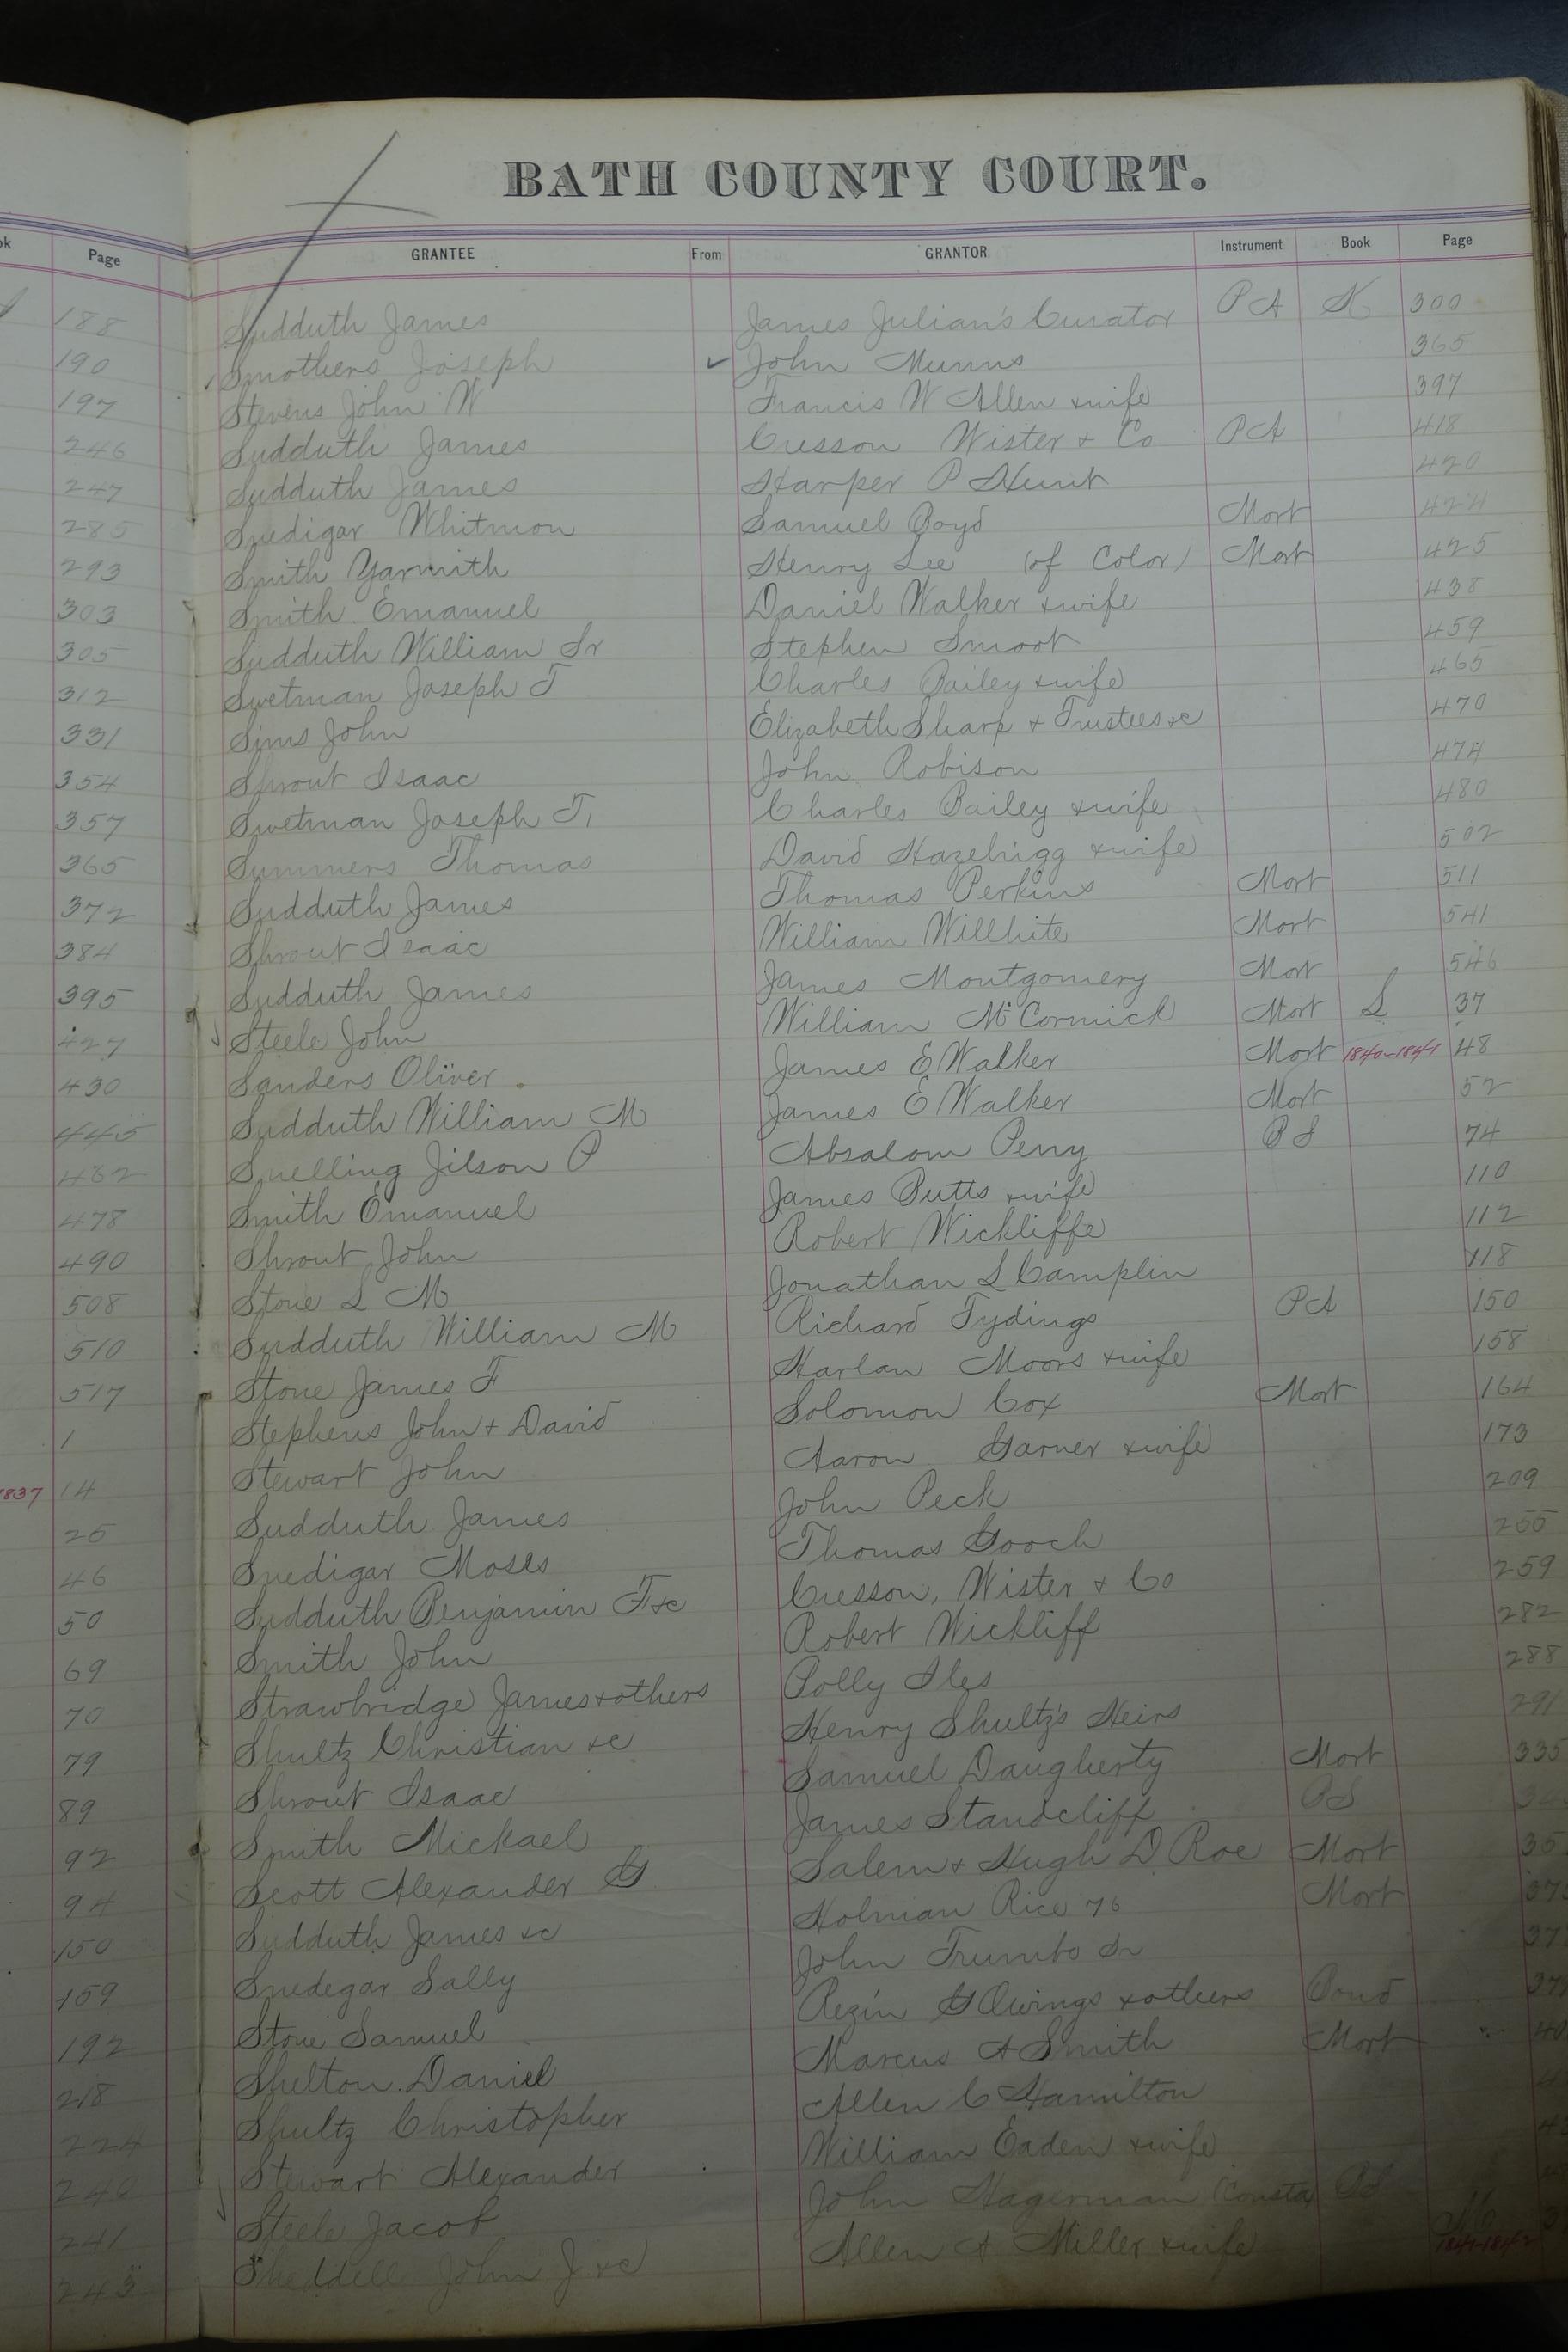 BATH COUNTY COURT.
Page
GRANTEE From GRANTOR Instrument Book Page
188
190
197
246
247
285
293
303
305
312
331
354
357
365
372
384
395
427
430
445
462
478
490
508
510
517
1
1837 14
25
46
50
69
70
79
89
92
94
150
159
192
218
224
240
241
243
Sudduth James James Julian's Curator PA K 300
Smothers Joseph ✓ John Munns 365
Stevens John W Francis W Allen & wife 397
Sudduth James Cresson Wister & Co PA 418
Sudduth James Harper P Hunt 420
Snedigar Whitmon Samuel Boyd Mort 424
Smith Yarmith Henry Lee (of Color) Mort 425
Smith Emanuel Daniel Walker & wife 438
Sudduth William Sr Stephen Smoot 459
Swetman Joseph T Charles Bailey & wife 465
Sims John Elizabeth Sharp & Trustees &c 470
Shrout Isaac John Robison 474
Swetman Joseph T, Charles Bailey & wife 480
Summers Thomas David Hazelrigg & wife 502
Sudduth James Thomas Perkins Mort 511
Shrout Isaac William Willhite Mort 541
Sudduth James James Montgomery Mort 546
Steele John William McCormick Mort L 37
Sanders Oliver James E Walker Mort 1840-1841 48
Sudduth William M James E Walker Mort 52
Snelling Jilson P Absalom Perry BS 74
Smith Emanuel James Butts & wife 110
Shrout John Robert Wickliffe 112
Stone L M Jonathan L Camplin 118
Sudduth William M Richard Tydings PA 150
Stone James F Harlan Moors & wife 158
Stephens John & David Solomon Cox Mort 164
Stewart John Aaron Garner & wife 173
Sudduth James John Peck 209
Snedigar Moses Thomas Gooch 255
Sudduth Benjamin F &c Cresson, Wister & Co 259
Smith John Robert Wickliff 282
Strawbridge James & others Polly Iles 288
Shultz Christian &c Henry Shultz's Heirs 291
Shrout Isaac Samuel Daugherty Mort 335
Smith Mickael James Standcliff BS
Scott Alexander G Salem & Hugh D Roe Mort 35
Sudduth James &c Holman Rice 76 Mort 37
Snedegar Sally John Trumbo Sr 37
Stone Samuel Rezin G Owings & others Bond 37
Shelton Daniel Marcus A Smith Mort 40
Shultz Christopher Allen C Hamilton
Stewart Alexander William Eaden & wife
Steele Jacob John Hagerman (Consta BS
John J &c Allen A Miller & wife M 1841-1842 3